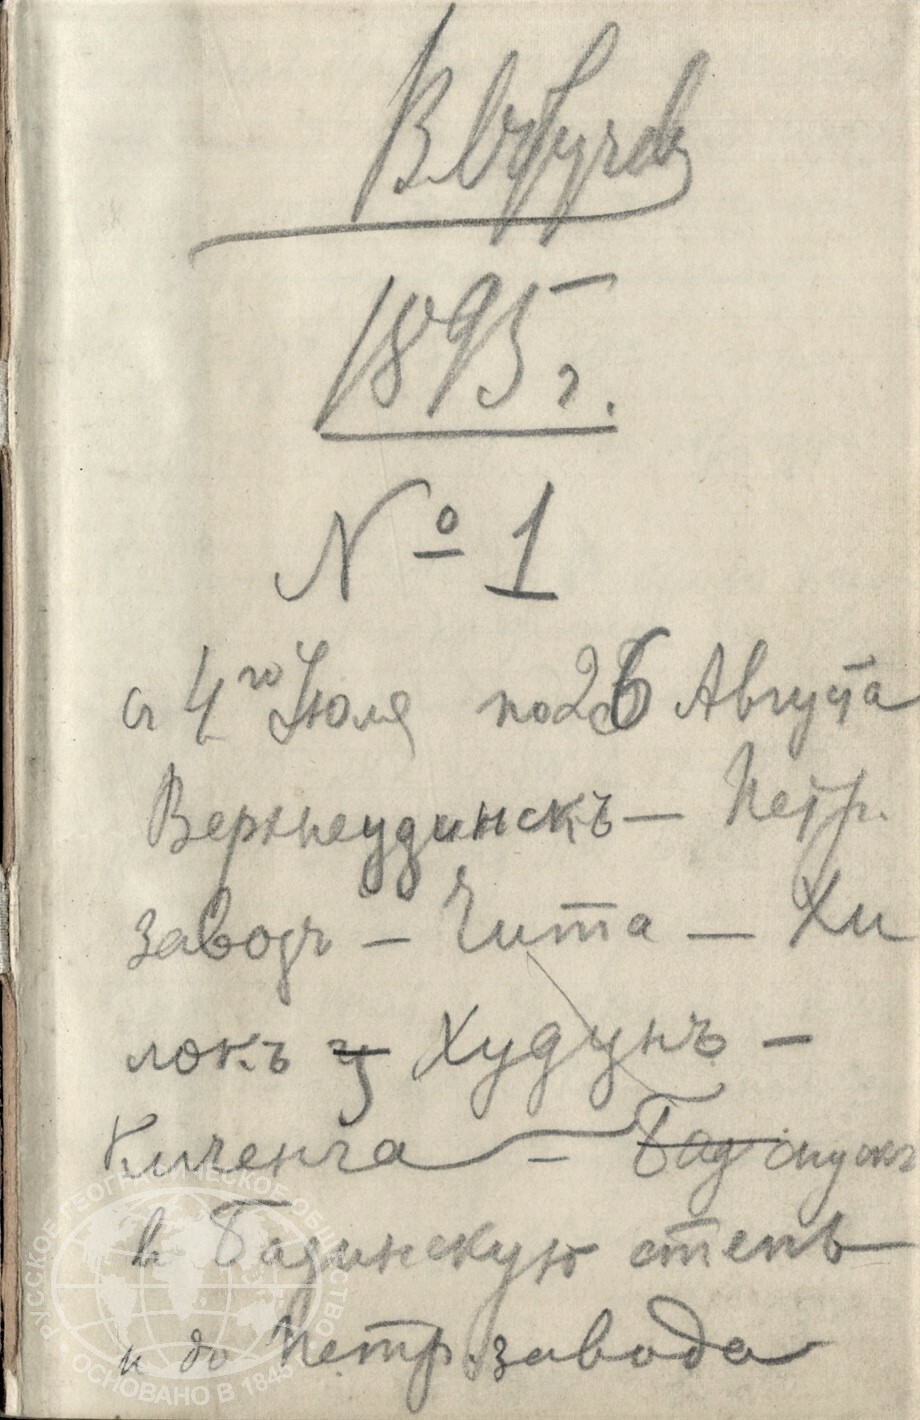 В Обручев
1895 г.
№ 1
съ 4го Июля по 26 Августа
Верхнеудинскъ — Петр.
заводъ — Чита — Хи
локъ Худунъ —
Киченга — Бад спускъ
в Бадинскую степь —
и до Петр. завода
РУССКОЕ ГЕОГРАФИЧЕСКОЕ ОБЩЕСТВО
ОСНОВАНО В 1845